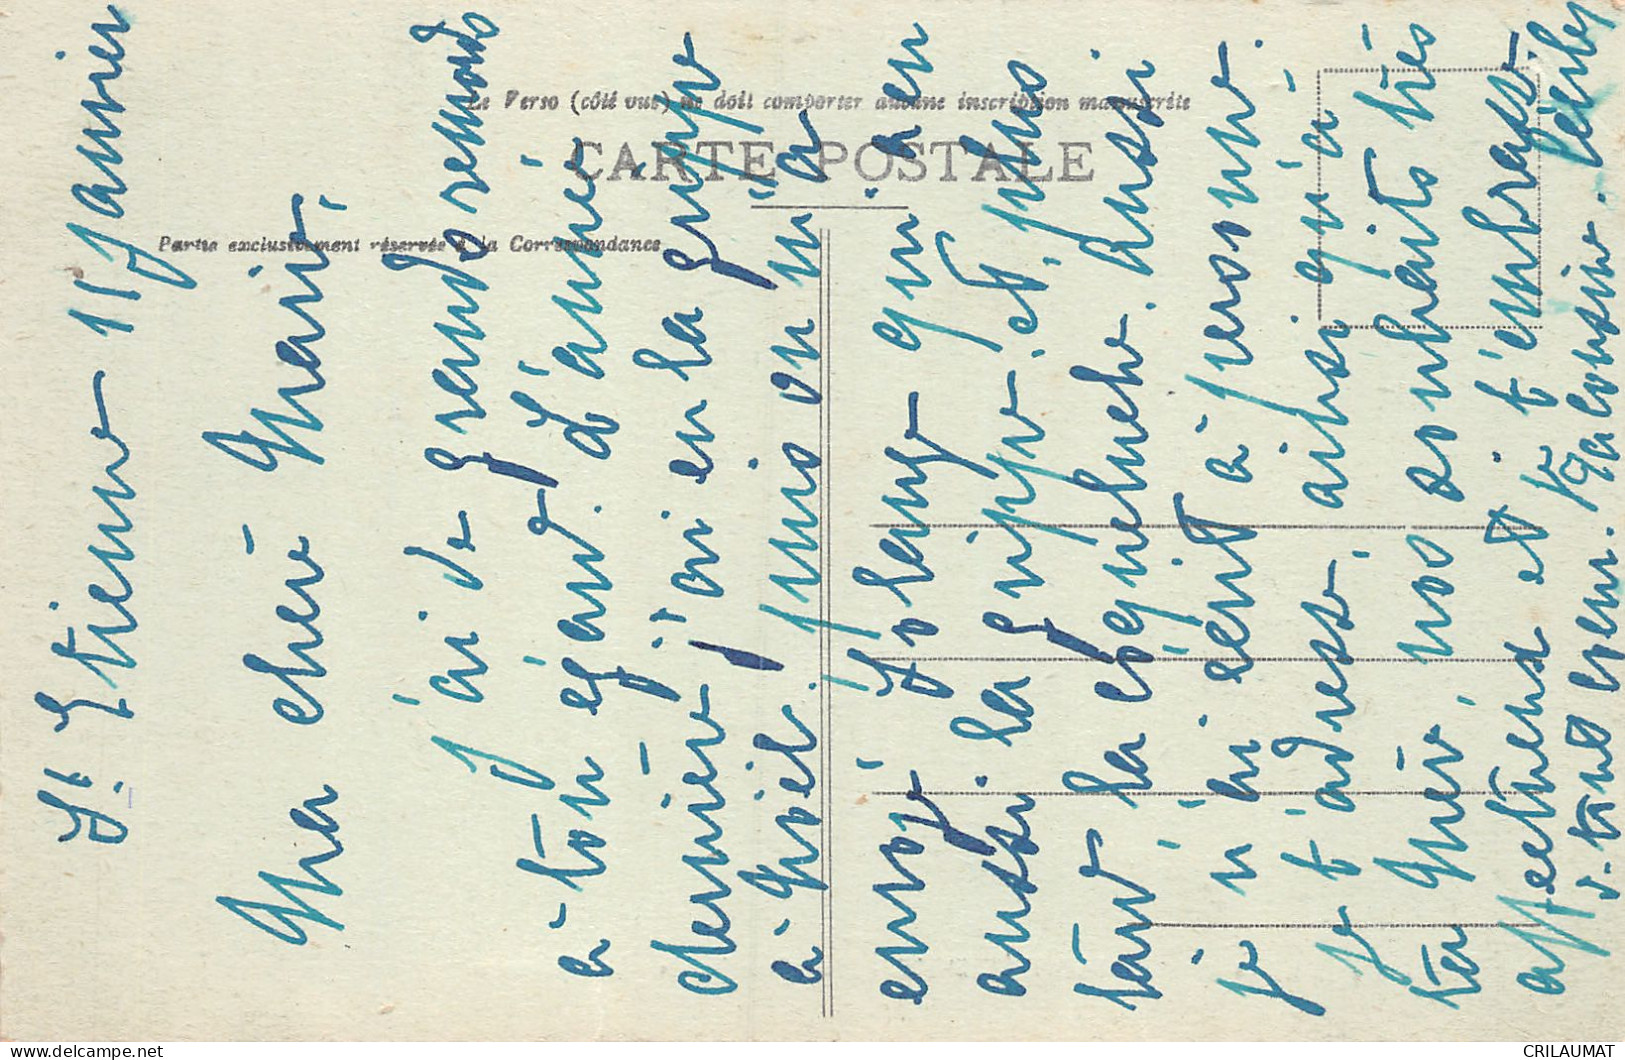 Le Verso (côté vue) ne doit comporter aucune inscription manuscrite
CARTE POSTALE
Partie exclusivement réservée à la Correspondance
St. Etienne 15 Janvier
Ma chère Marie,
j'ai de grands remords
à ton égard. L'année
dernière j'ai eu la grippe
à Noël. puis on m'a
envoyé Solange qui a eu
aussi. la grippe. et, plus
tard la coqueluche. Aussi
je n'ai écrit à personne.
Je t'adresse, ainsi qu'à
ta Mère, nos souhaits très
affectueux et je t'embrasse.
CRILAUMAT